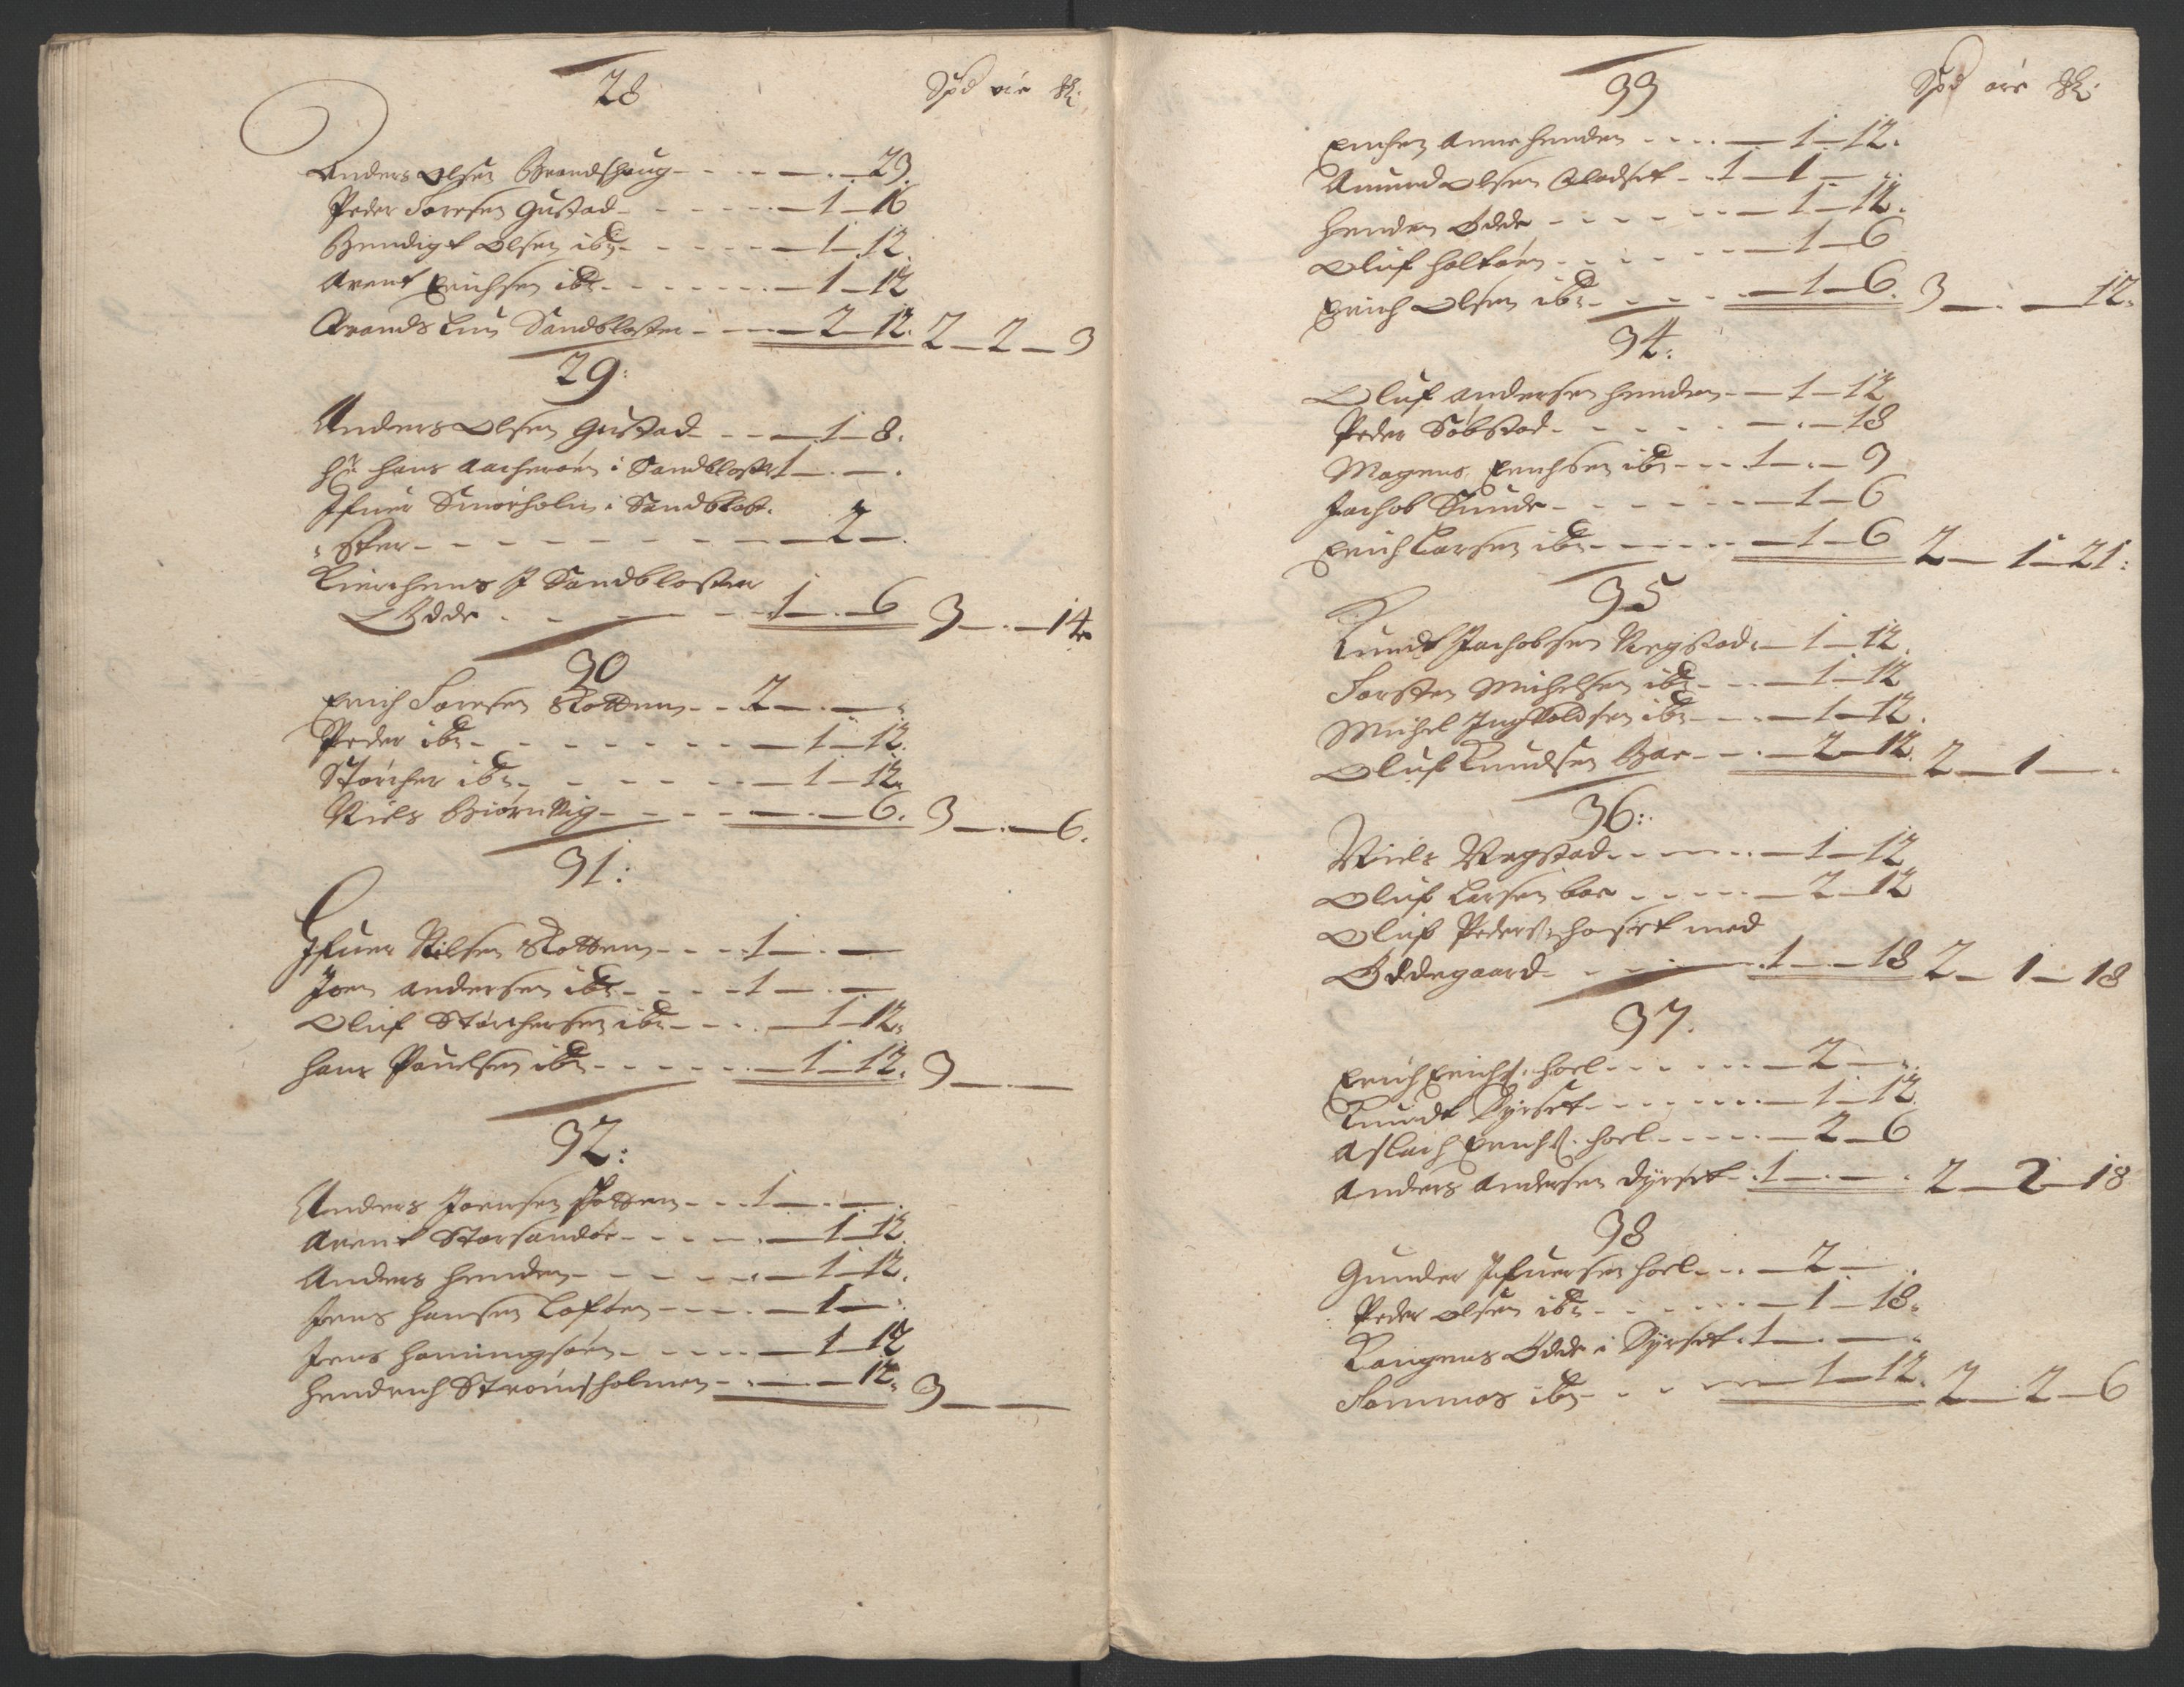 28
Spd ort sk:
Anders Olsen Strandshaug - - - - . - 23.
Peder Toresen Gustad - - - - 1 - 16
Bendigt Olsen ibd - - - - 1 - 12.
Arent Erichsen ibd - - - - 1 - 12
Trands Lun Sandbloster - - - 2 - 12. 2 - 2 - 3
29:
Anders Olsen Gustad - - - 1 - 8.
Hr Hans Aacheröen i Sandbloster 1 - . - .
Ifuer Smörholm i Sandblo-
: ster - - - - - - - 2 - .
Kierchens J Sandbloster
Odde - - - - 1 - . - 6 3 - . - 14
30
Erich Toresen Rotten - - 2 - . - :
Peder ibd - - - - - - 1 - 12.
Störcher ibd - - - - - 1 - 12.
Niels Biörnvig - - - - . - 6. 3 - . - 6.
31:
Ifuer Nilsen Rotten - - - 1 - . -
Joen Andersen ibd - - - - 1 - . -
Oluf Störchersen ibd - - - 1 - 12.
Hans Pouelsen ibd - - - - 1 - 12. 3 - . -
32:
Anders Joensen Rotten - - 1 - . - .
Arent Storsandöe - - - - 1 - 12.
Anders Henden - - - - 1 - 12.
Jens Hansen Loften - - - - 1 - :
Jens Honningsöen - - - - 1 - 12
Hendrich Strömsholmen - . - 12. 3 - -
33
Spd ort sk:
Enchen Anne Henden - - - - 1 - 12.
Amund Olsen - - 1 - 1 - :
Henden Odde - - - - - 1 - 12.
Oluf Holtöen - - - - - 1 - 6
Erich Olsen ibd - - - - 1 - 6. 3 - . - 12.
34:
Oluf Andersen Henden - - 1 - 12
Peder Söbstad - - - - - . - 18
Mogens Erichsen ibd - - - 1 - . - 9
Jachob Sunde - - - - - 1 - 6
Erich Larsen ibd - - - - 1 - 6 2 - 1 - 21:
35
Knudt Jachobsen Vegstad - 1 - 12.
Torsten Michelsen ibd - - - 1 - 12
Michel Ingvoldsen ibd - - - 1 - 12.
Oluf Knudsen Boe - - . - 2 - 12. 2 - 1 - .
36:
Niels Vegstad - - - - - 1 - 12
Oluf Larsen Boe - - - - 2 - 12
Oluf Peders: Haset med
Öddegaard - - - - 1 - . - 18 2 - 1 - 18
37.
Erich Erichs: Hoel - - - - - 2 - .
Knudt Dyrset - - - - - - 1 - 12.
Aslach Erichs: Hoel - - - - 2 - 6
Anders Andersen Dyrset - 1 - . - . 2 - 2 - 18
38
Gunder Ifuersen Hoel - - - 2 - .
Peder Olsen ibd - - - - - 1 - 18.
Kongens Odde i Dyrset - 1 - . - .
Tommas ibd - - - - 1 - 12. 2 - 2 - 6